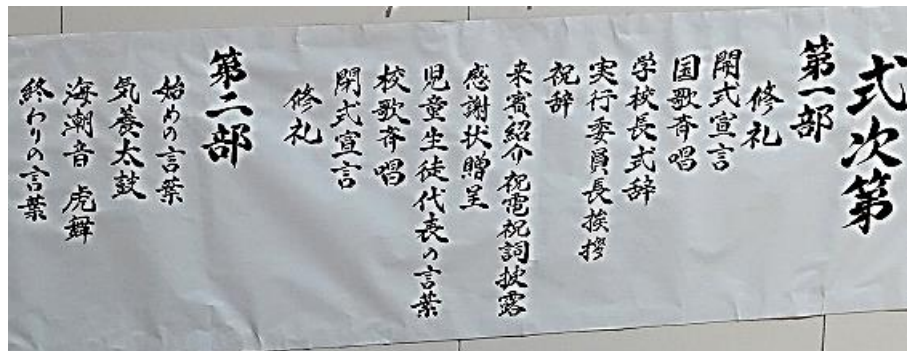 式次第
第一部
修礼
開式宣言
国歌斉唱
学校長式辞
実行委員長挨拶
祝辞
来賓紹介 祝電祝詞披露
感謝状贈呈
児童生徒代表の言葉
校歌斉唱
閉式宣言
修礼
第二部
始めの言葉
気養太鼓
海潮音 虎舞
終わりの言葉